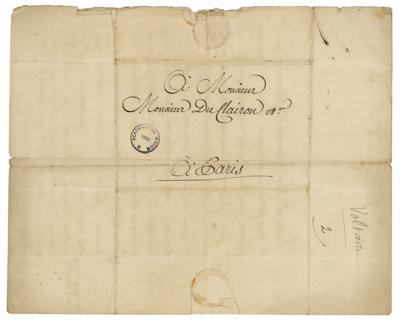 A Monsieur
Monsieur Du Clairon &c.
A Paris
Voltaire
2